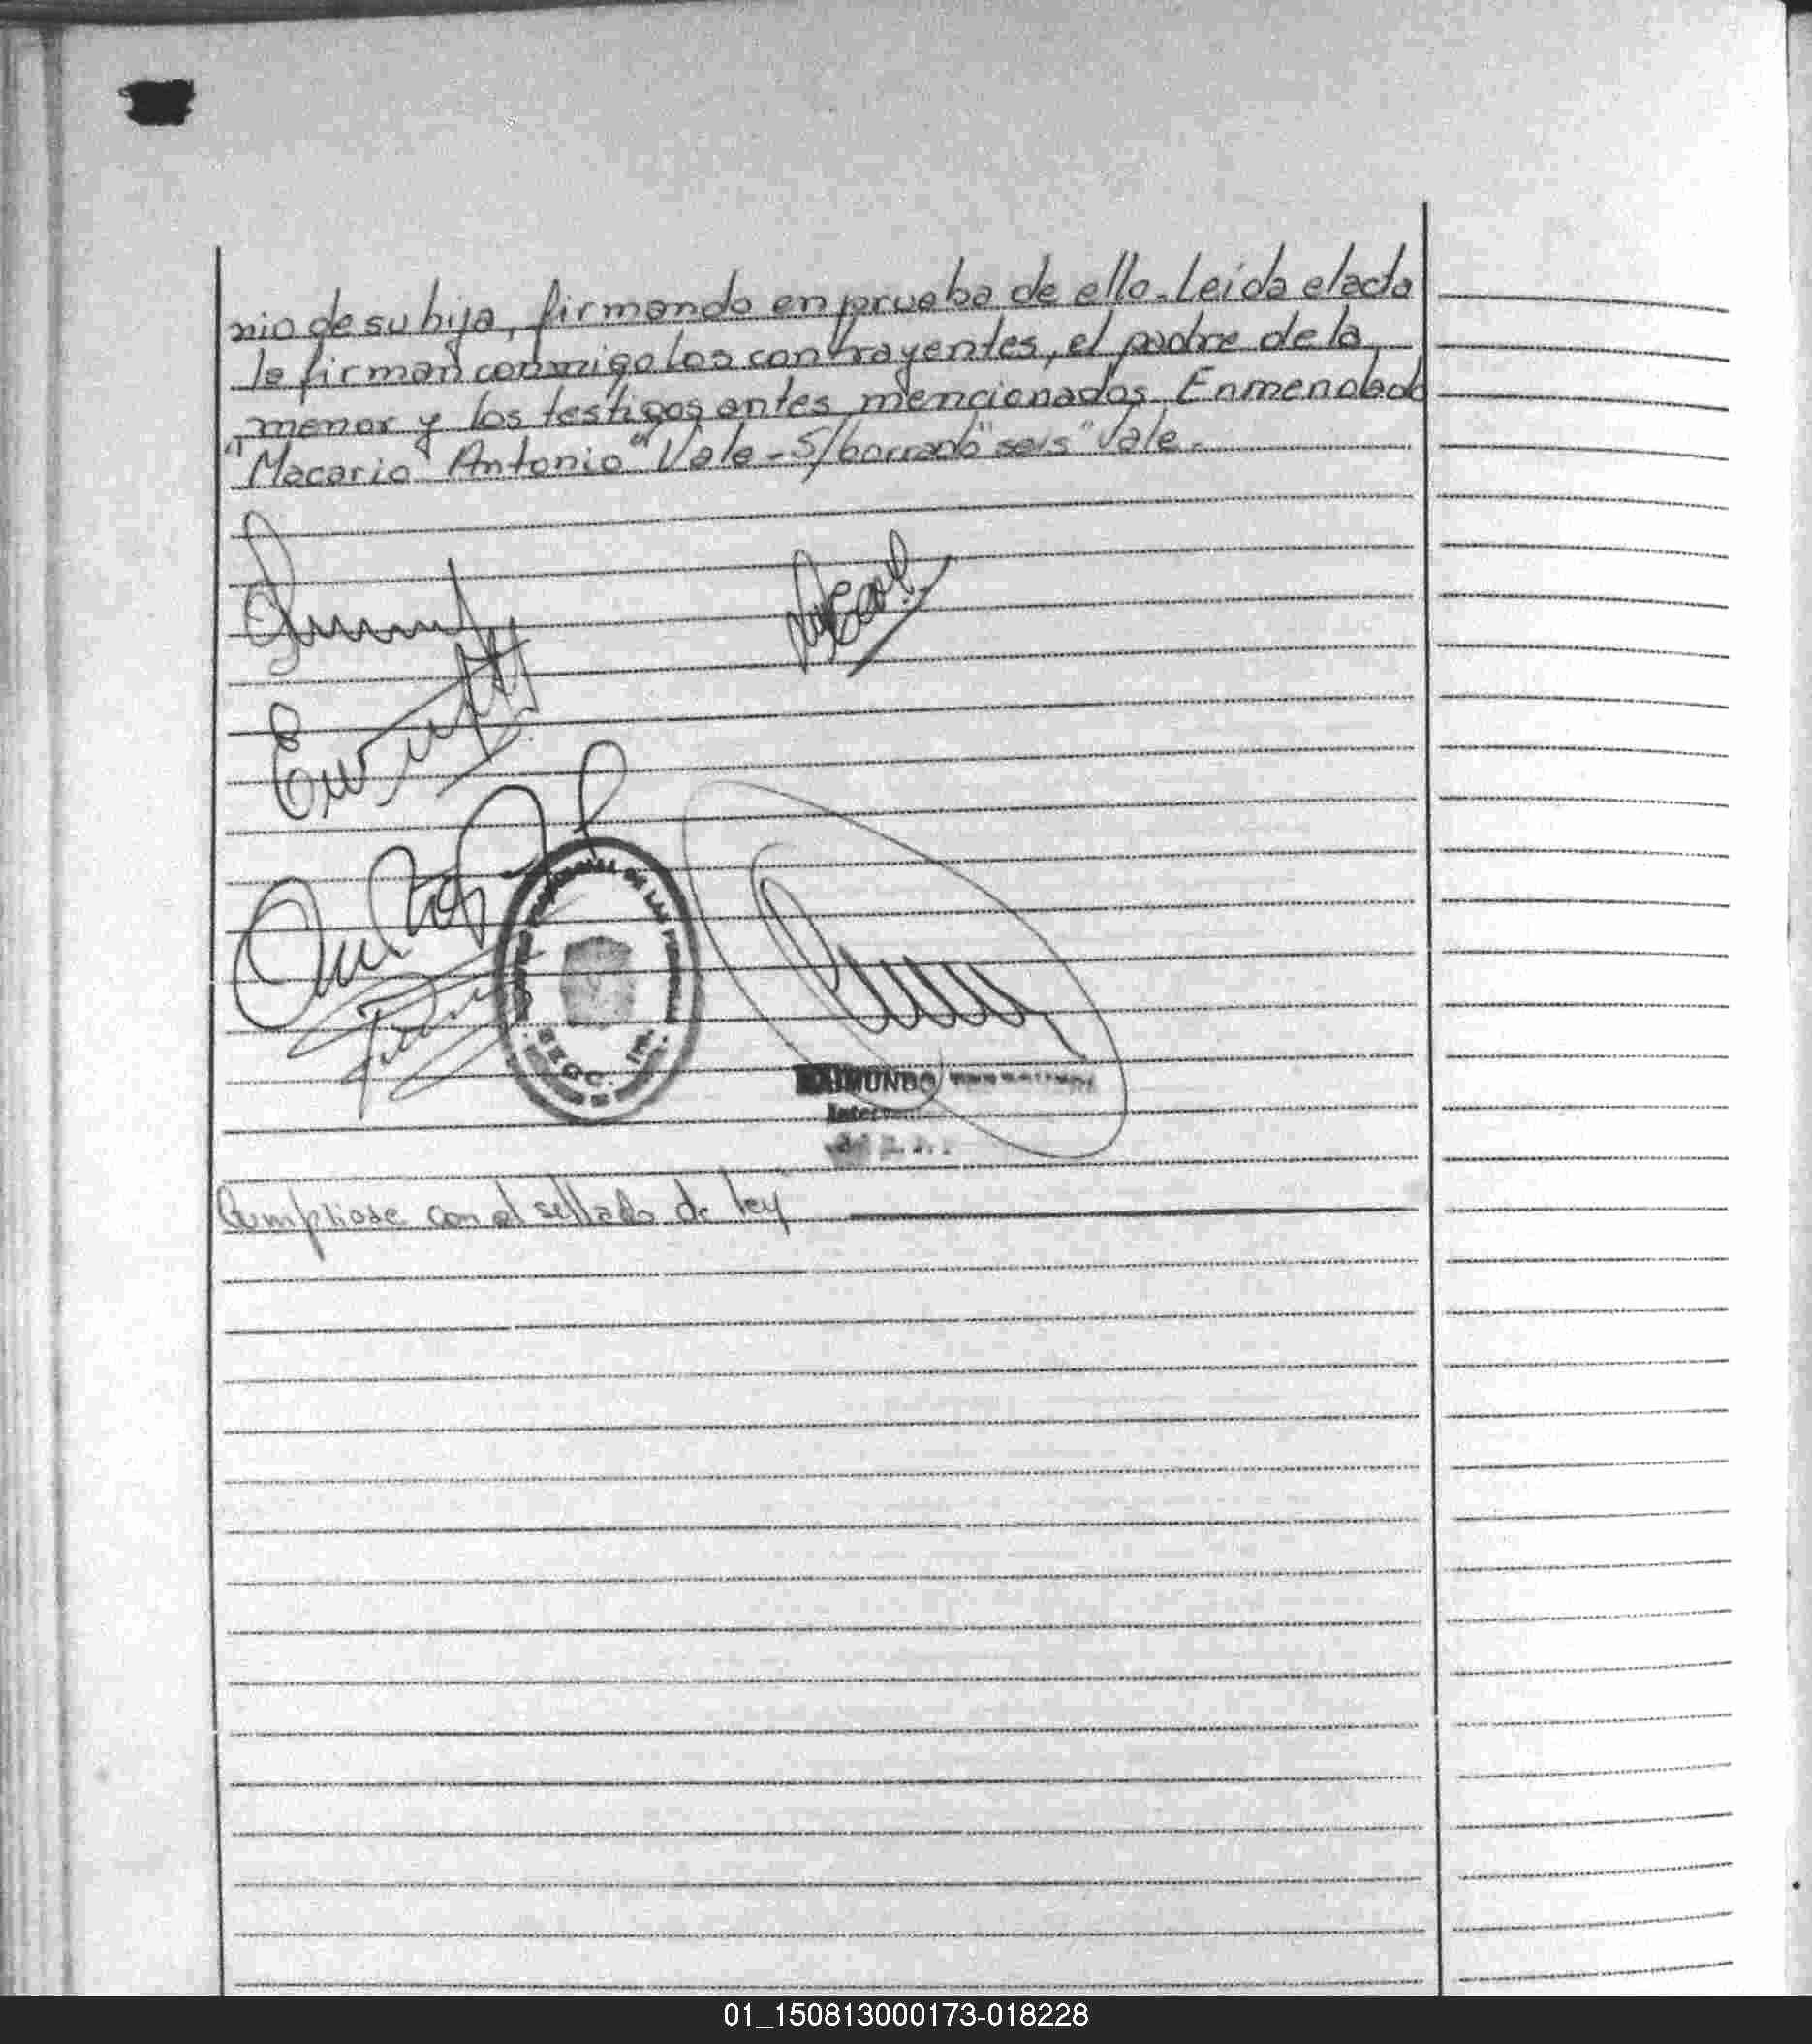 nio de su hija, firmando en prueba de ello. Leida el acta
la firman conmigo los contrayentes, el padre de la
menor y los testigos antes mencionados. Enmendado
"Macario" Antonio" Vale - S/borrado "seis" Vale.-
DE LAS PERSONAS
SECC.
RAIMUNDO
Cumpliose con el sellado de ley
01_150813000173-018228